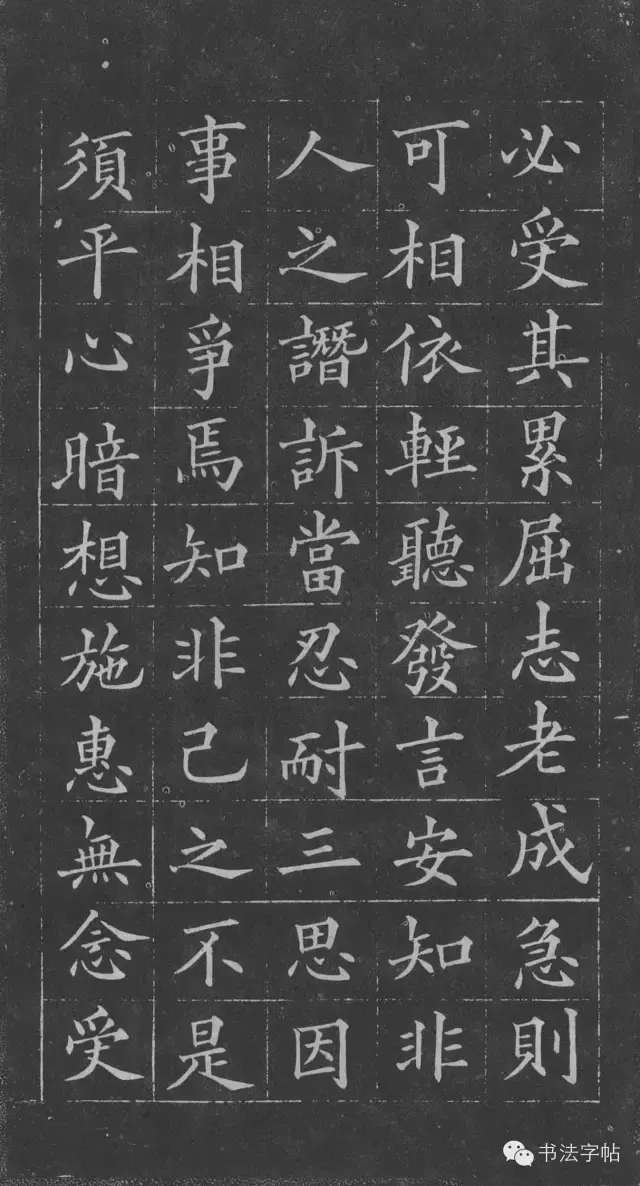 必受其累屈志老成急則
可相依輕聽發言安知非
人之譖訴當忍耐三思因
事相爭焉知非己之不是
須平心暗想施惠無念受
书法字帖